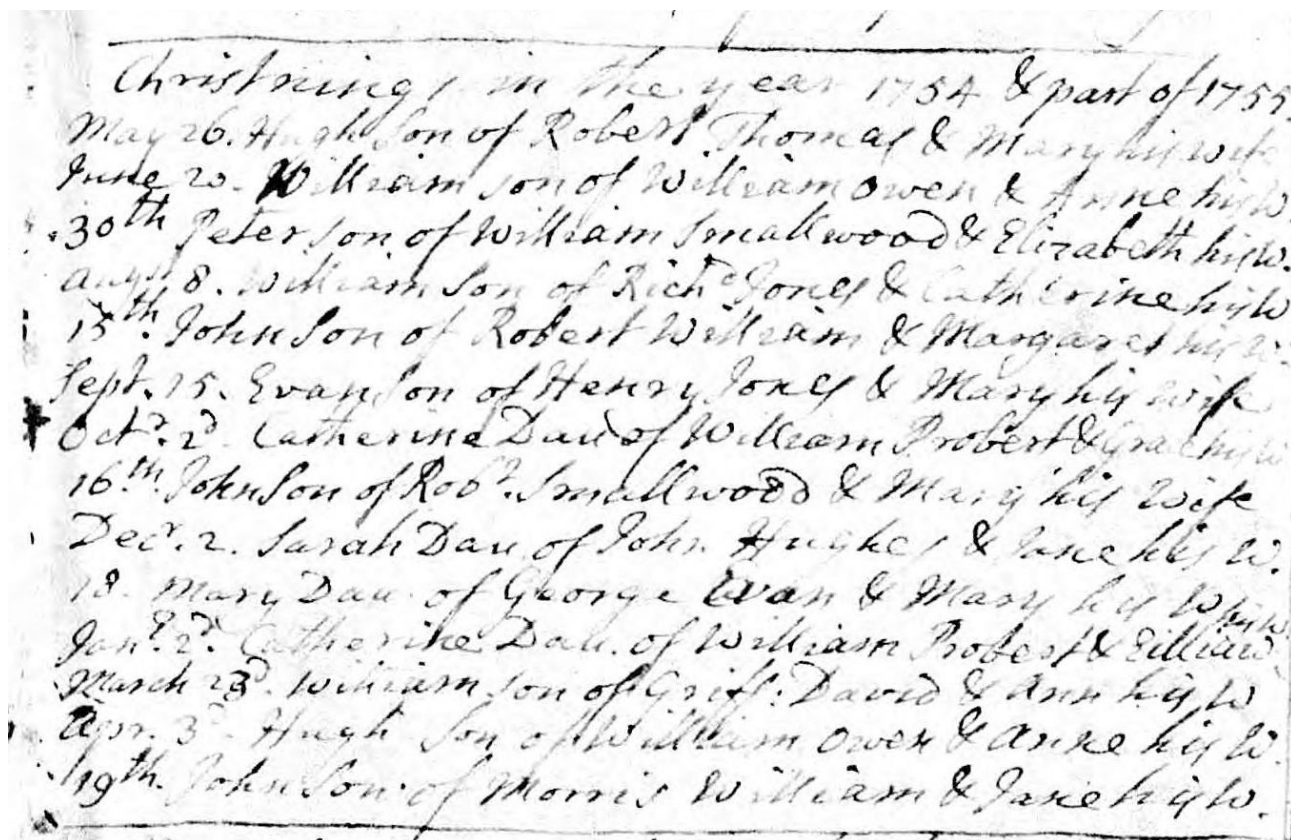 Christnings in the year 1754 & part of 1755
May 26. Hugh Son of Robert Thomas & Mary his wife
June 20. William son of William Owen & Anne his W.
30th Peter son of William Smallwood & Elizabeth his W.
Augst 8. William Son of Richd Jones & Catherine his W
15th. John Son of Robert William & Margaret his W.
Sept. 15. Evan Son of Henry Jones & Mary his wife
Octr. 2d. Catherine Dau of William Probert & Grace his W
16th. John Son of Robt. Smallwood & Mary his Wife
Decr. 2. Sarah Dau of John Hughes & Jane his W.
18. Mary Dau of George Evan & Mary his W
Janry. 2d. Catherine Dau. of William Probert & his W.
March 23d. William son of Griff: David & Ann his W
Apr. 3d. Hugh Son of William Owen & Anne his W.
19th. John Son of Morris William & Jane his W.